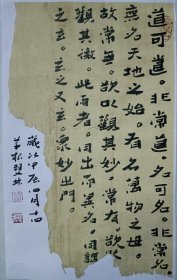 道可道。非常道。名可名。非常名。
無名天地之始。有名萬物之母。
故常無。欲以觀其妙。常有。欲以
觀其徼。此兩者。同出而異名。同謂
之玄。玄之又玄。眾妙之門。
歲次甲辰四月十四